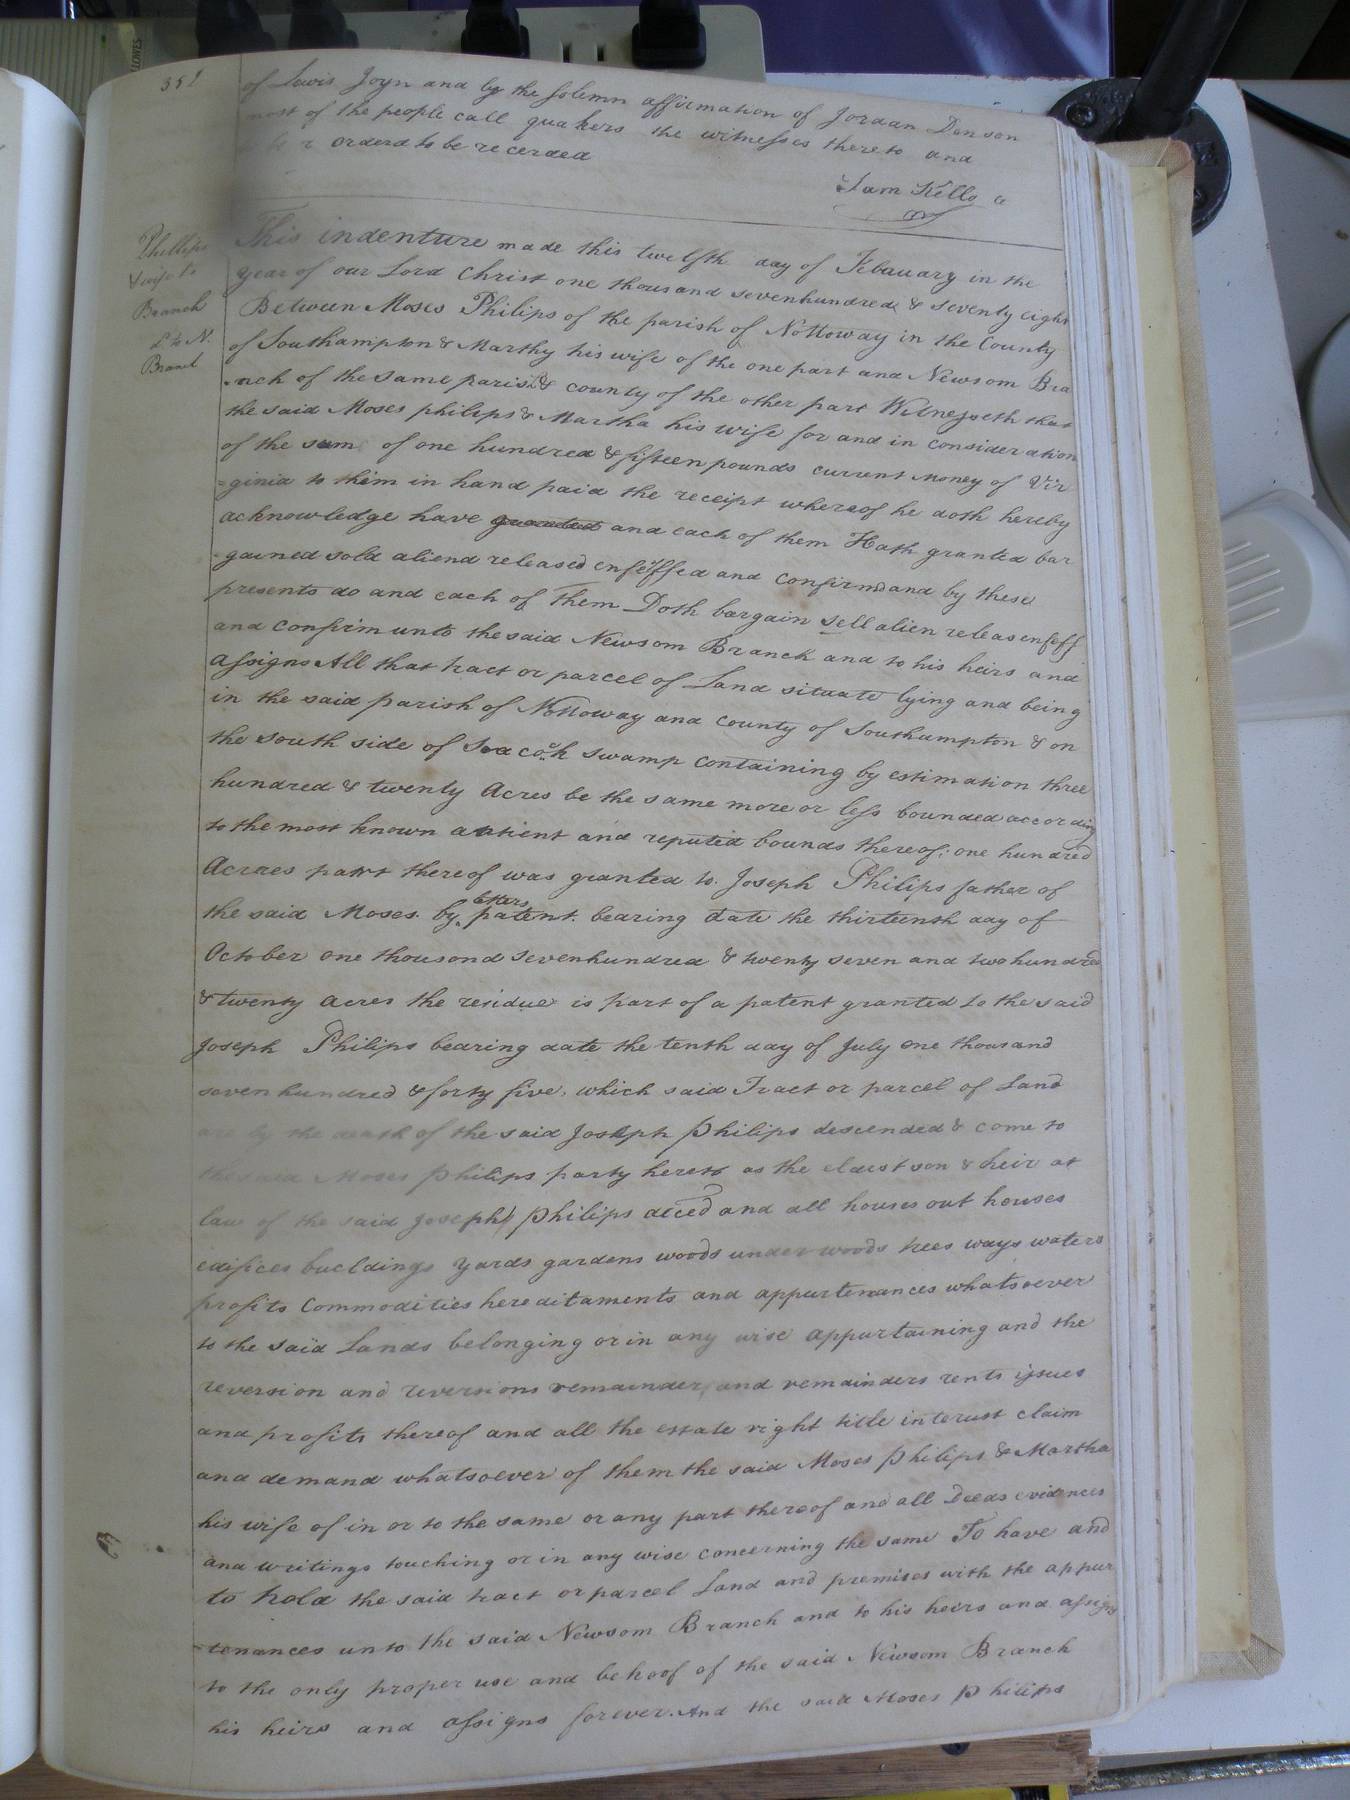 351
of Lewis Joyn and by the solemn affirmation of Jordan Denson
most of the people call quakers the witnesses thereto and
orderd to be recerded
Sam Kello
Phillips
& wife to
Branch
N.
Branch
This indenture made this twelfth day of Febauary in the
year of our Lord Christ one thousand sevenhundred & seventy eight
Between Moses Philips of the parish of Nottoway in the County
of Southampton & Marthy his wife of the one part and Newsom Bra
nch of the same parish & county of the other part Witnesseth that
the said Moses philips & Martha his wife for and in consideration
of the sum of one hundred & fifteen pounds current money of Vir
=ginia to them in hand paid the receipt whereof he doth hereby
acknowledge have granted and each of them Hath granted bar
gained sold aliend released enfeoffed and confirmd and by these
presents do and each of them Doth bargain sell alien release enfeff
and confirm unto the said Newsom Branch and to his heirs and
assigns All that tract or parcel of Land situate lying and being
in the said parish of Nottoway and county of Southampton & on
the south side of Seacock swamp containing by estimation three
hundred & twenty Acres be the same more or less bounded according
to the most known antient and reputed bounds thereof: one hundred
Acraes part thereof was granted to Joseph Philips father of
the said Moses by letters patent bearing date the thirteenth day of
October one thousond sevenhundred & twenty seven and two hundred
& twenty acres the residue is part of a patent granted to the said
Joseph Philips bearing date the tenth day of July one thousand
sevenhundred & forty five, which said Tract or parcel of Land
are by the death of the said Joseph Philips descended & come to
the said Moses philips party hereto as the eldest son & heir at
law of the said Joseph philips deced and all houses out houses
edifices buildings yards gardens woods under woods trees ways waters
profits Commodities hereditaments and appurtenances whatsoever
to the said Lands belonging or in any wise appurtaining and the
reversion and reversions remainder and remainders rents issues
and profits thereof and all the estate right title interust claim
and demand whatsoever of them the said Moses philips & Martha
his wife of in or to the same or any part thereof and all Deeds evidences
and writings touching or in any wise concerning the same To have and
to hold the said tract or parcel Land and premises with the appur
tenances unto the said Newsom Branch and to his heirs and assigns
to the only proper use and behoof of the said Newsom Branch
his heirs and assigns forever. And the said Moses philips